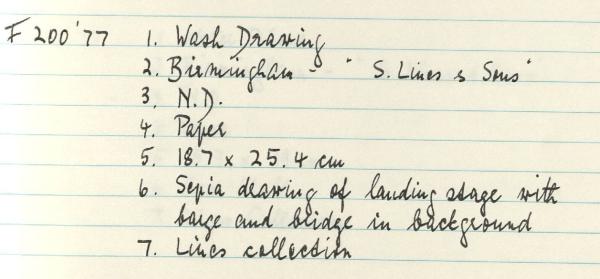 F 200'77 1. Wash Drawing
2. Birmingham - "S. Lines & Sons"
3. N.D.
4. Paper
5. 18.7 x 25.4 cm
6. Sepia drawing of landing stage with
barge and bridge in background
7. Lines collection